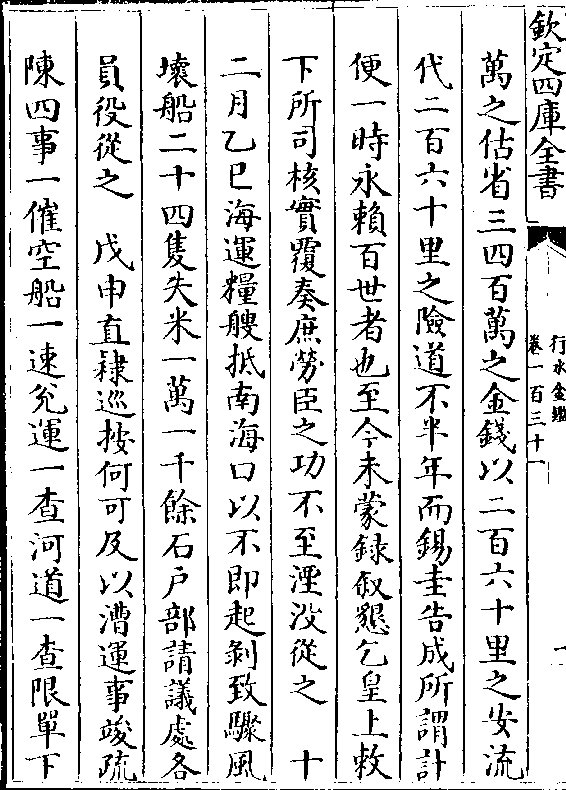 欽定四庫全書
行水金鑑
卷一百三十一
一
萬之估省三四百萬之金錢以二百六十里之安流
代二百六十里之險道不半年而錫圭告成所謂計
便一時永賴百世者也至今未蒙録叙懇乞皇上敕
下所司核實覆奏庶勞臣之功不至湮没從之　十
二月乙巳海運糧艘抵南海口以不即起剝致驟風
壞船二十四隻失米一萬一千餘石户部請議處各
員役從之　戊申直隷巡按何可及以漕運事竣疏
陳四事一催空船一速兊運一查河道一查限單下